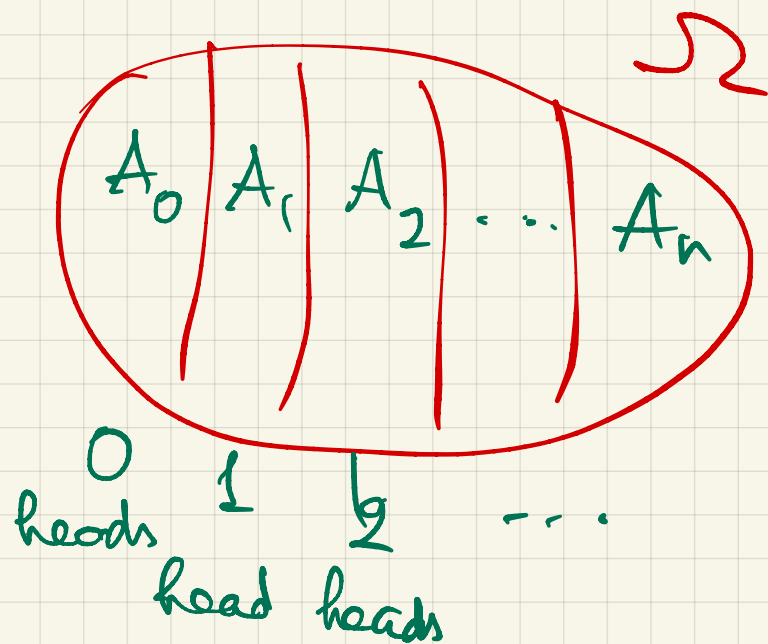 Ω
A₀ A₁ A₂ ... Aₙ
0 1 2 ...
heads head heads